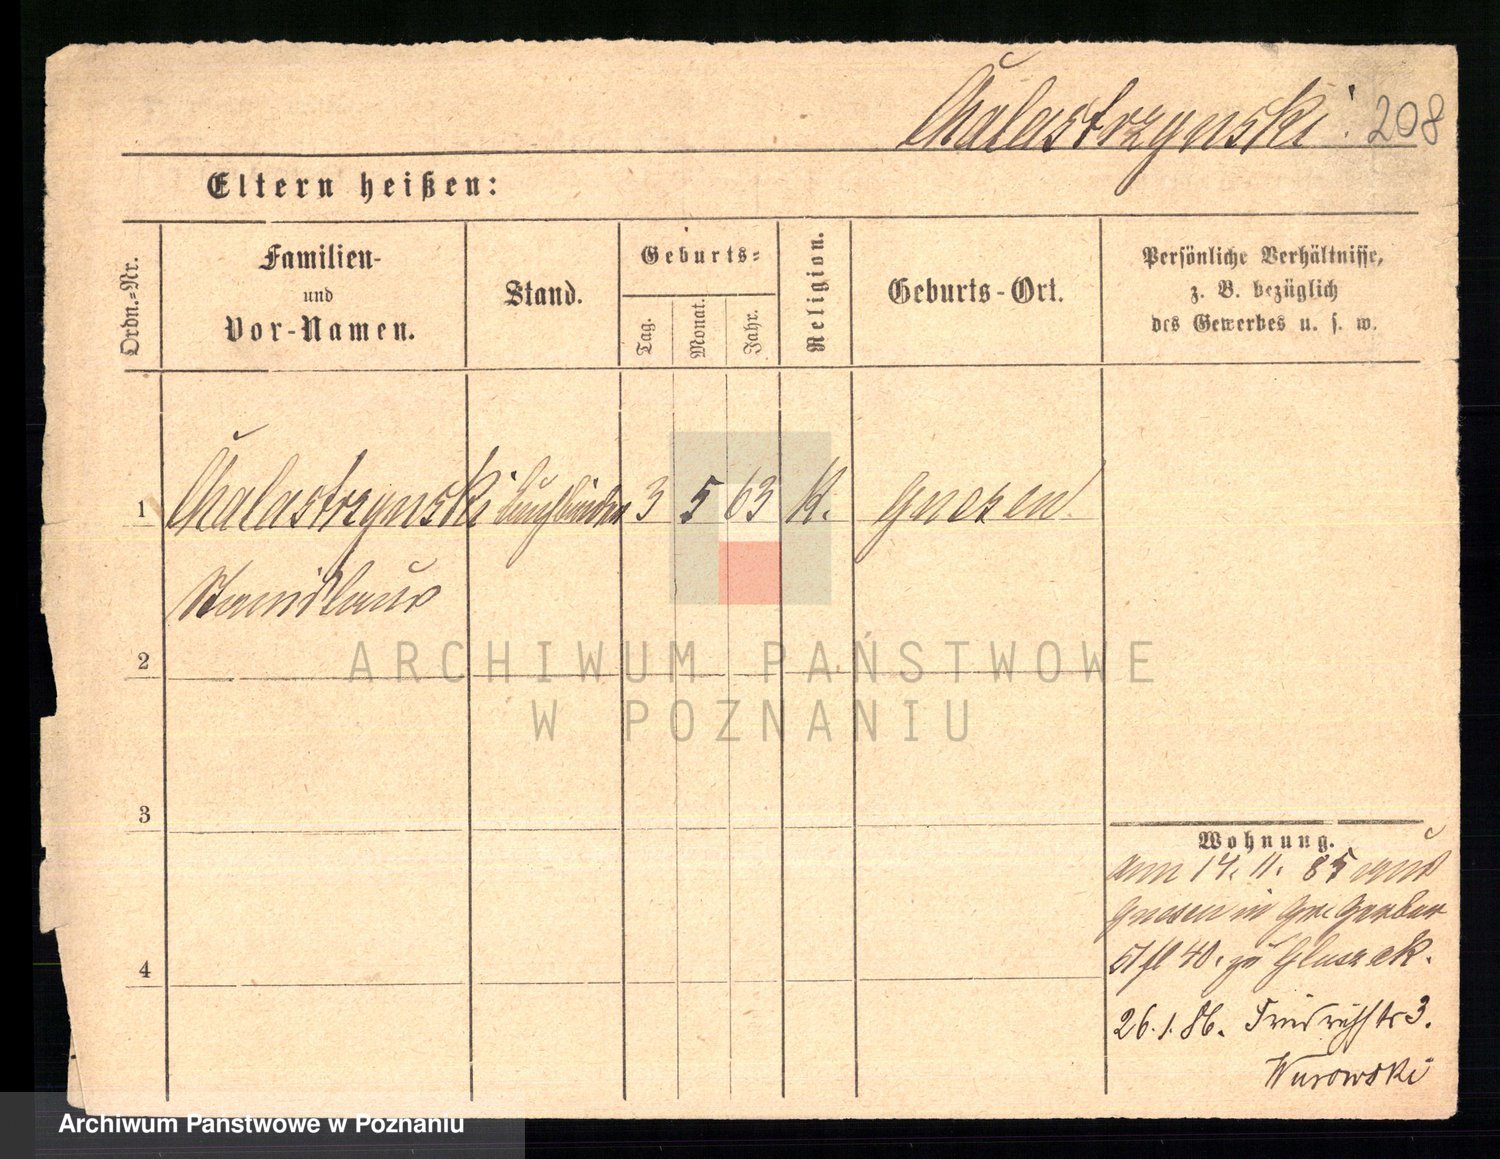 Chalastrzynski. 208
Eltern heißen:
Ordn.-Nr.
Familien-
und
Vor-Namen.
Stand.
Geburts-
Tag.
Monat.
Jahr.
Religion.
Geburts-Ort.
Persönliche Verhältnisse,
z. B. bezüglich
des Gewerbes u. s. w.
1 Chalastrzynski 3 5 63 K. Gnesen
Stanislaus
2
ARCHIWUM PAŃSTWOWE
W POZNANIU
3
4
Wohnung.
am 14. 11. 85 aus
Gnesen in Gr. Gerber
40. zu Gluszak.
26.1.86. Friedrichstr 3.
Wurowski
Archiwum Państwowe w Poznaniu